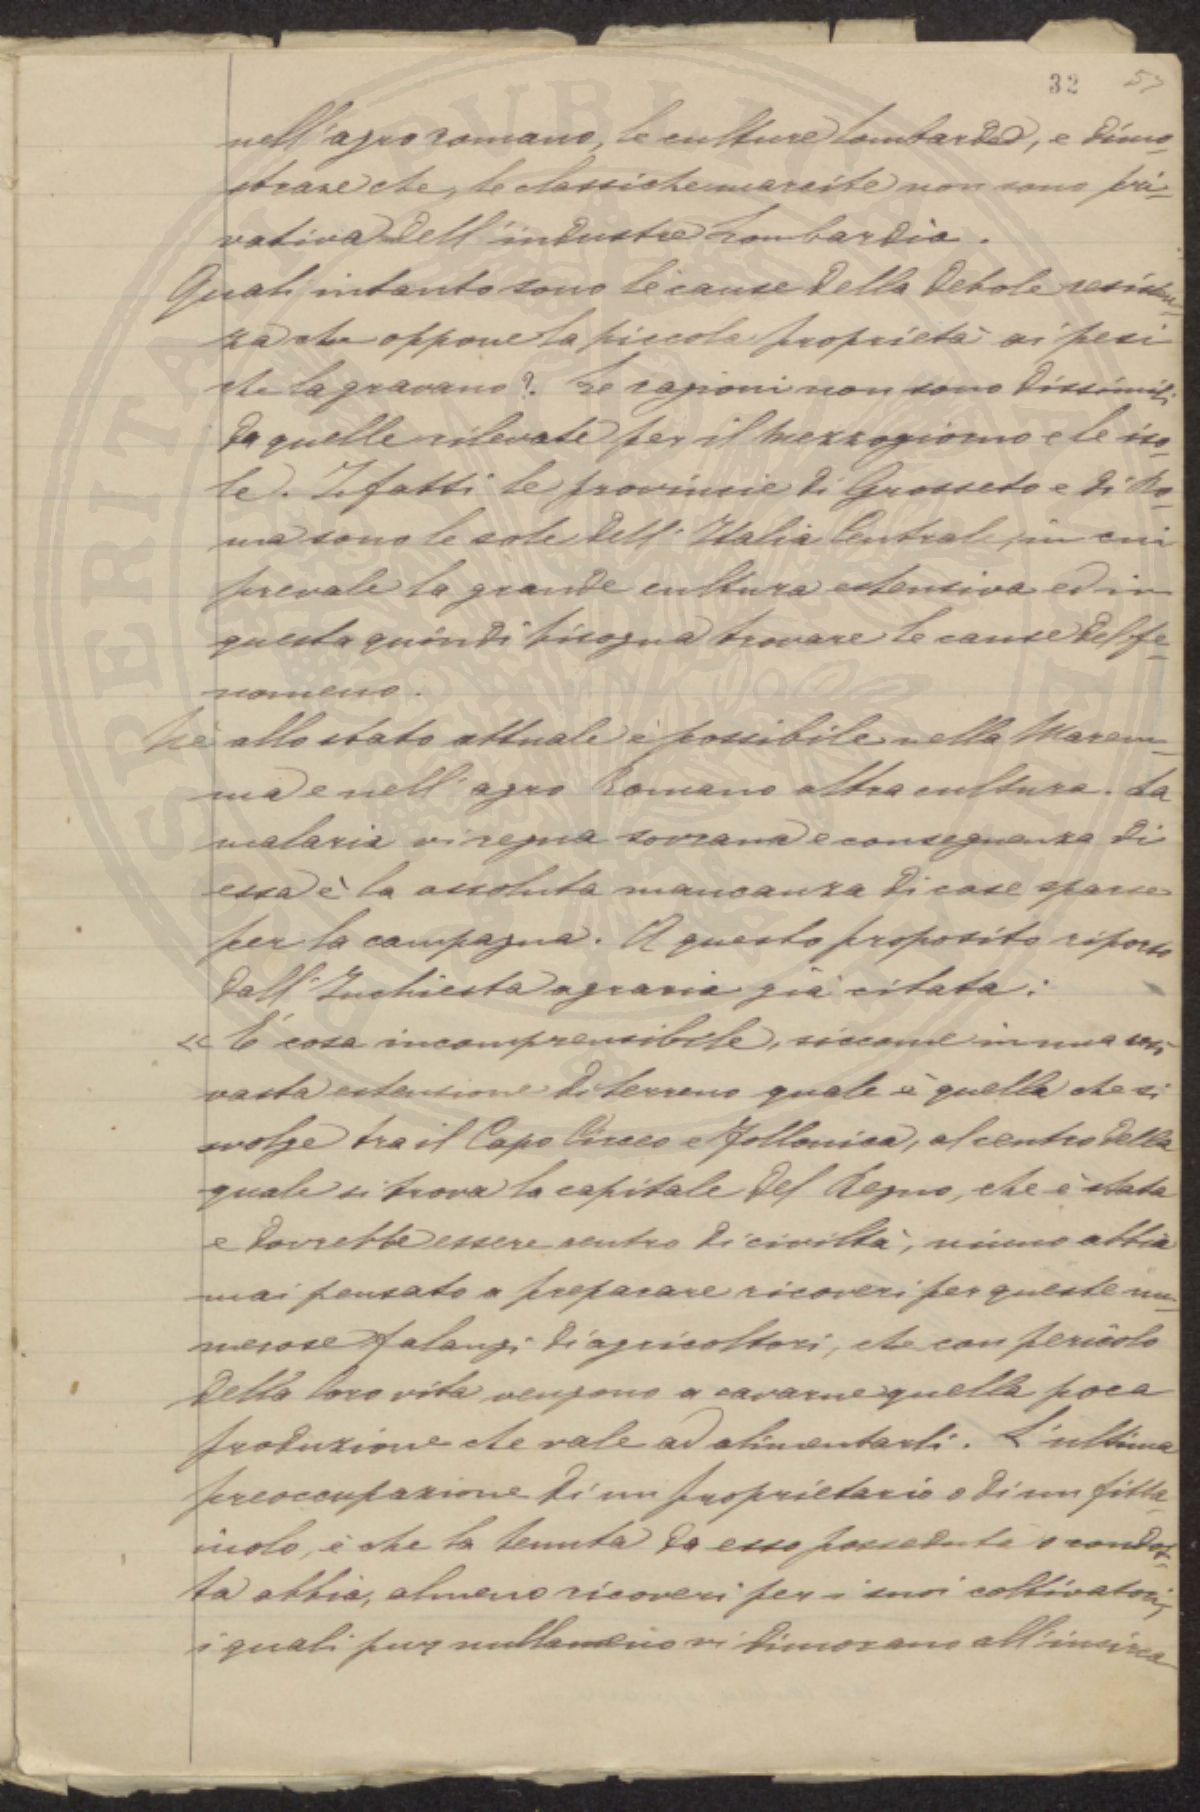 32 57
nell'agro romano, le culture lombarde, e dimo-
strare che, le classiche marcite non sono pri-
vativa dell'industre Lombardia.
Quali intanto sono le cause della debole resisten-
za che oppone la piccola proprietà ai pesi
che la gravano? Le ragioni non sono dissimili
da quelle rilevate per il Mezzogiorno e le iso-
le. Infatti le provincie di Grosseto e di Ro-
ma sono le sole dell'Italia Centrale, in cui
prevale la grande cultura estensiva ed in
questa quindi bisogna trovare le cause del fe-
nomeno.
Nè allo stato attuale è possibile nella Marem-
ma e nell'agro Romano altra cultura. La
malaria vi regna sovrana e conseguenza di
essa è la assoluta mancanza di case sparse
per la campagna. A questo proposito riporto
dall'Inchiesta agraria già citata:
« È cosa incomprensibile, siccome in una così
vasta estensione di terreno quale è quella che si
svolge tra il Capo Circeo e Follonica, al centro della
quale si trova la capitale del Regno, che è stata
e dovrebbe essere centro di civiltà, niuno abbia
mai pensato a preparare ricoveri per queste nu-
merose falangi di agricoltori, che con pericolo
della loro vita vengono a cavarne quella poca
produzione che vale ad alimentarli. L'ultima
preoccupazione di un proprietario o di un fitta-
iuolo, è che la tenuta da esso posseduta o condot-
ta abbia, almeno ricoveri per i suoi coltivatori,
i quali pur nullameno vi dimorano all'incirca
PROSPERITATI PVBLICAE